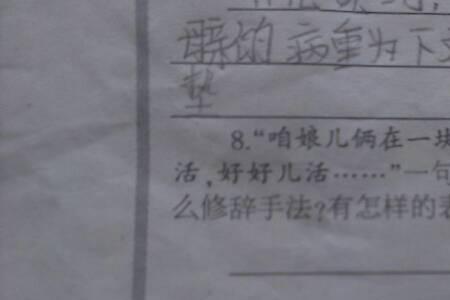 的病重为下文
垫
8.“咱娘儿俩在一块
活，好好儿活……”一句
么修辞手法?有怎样的表